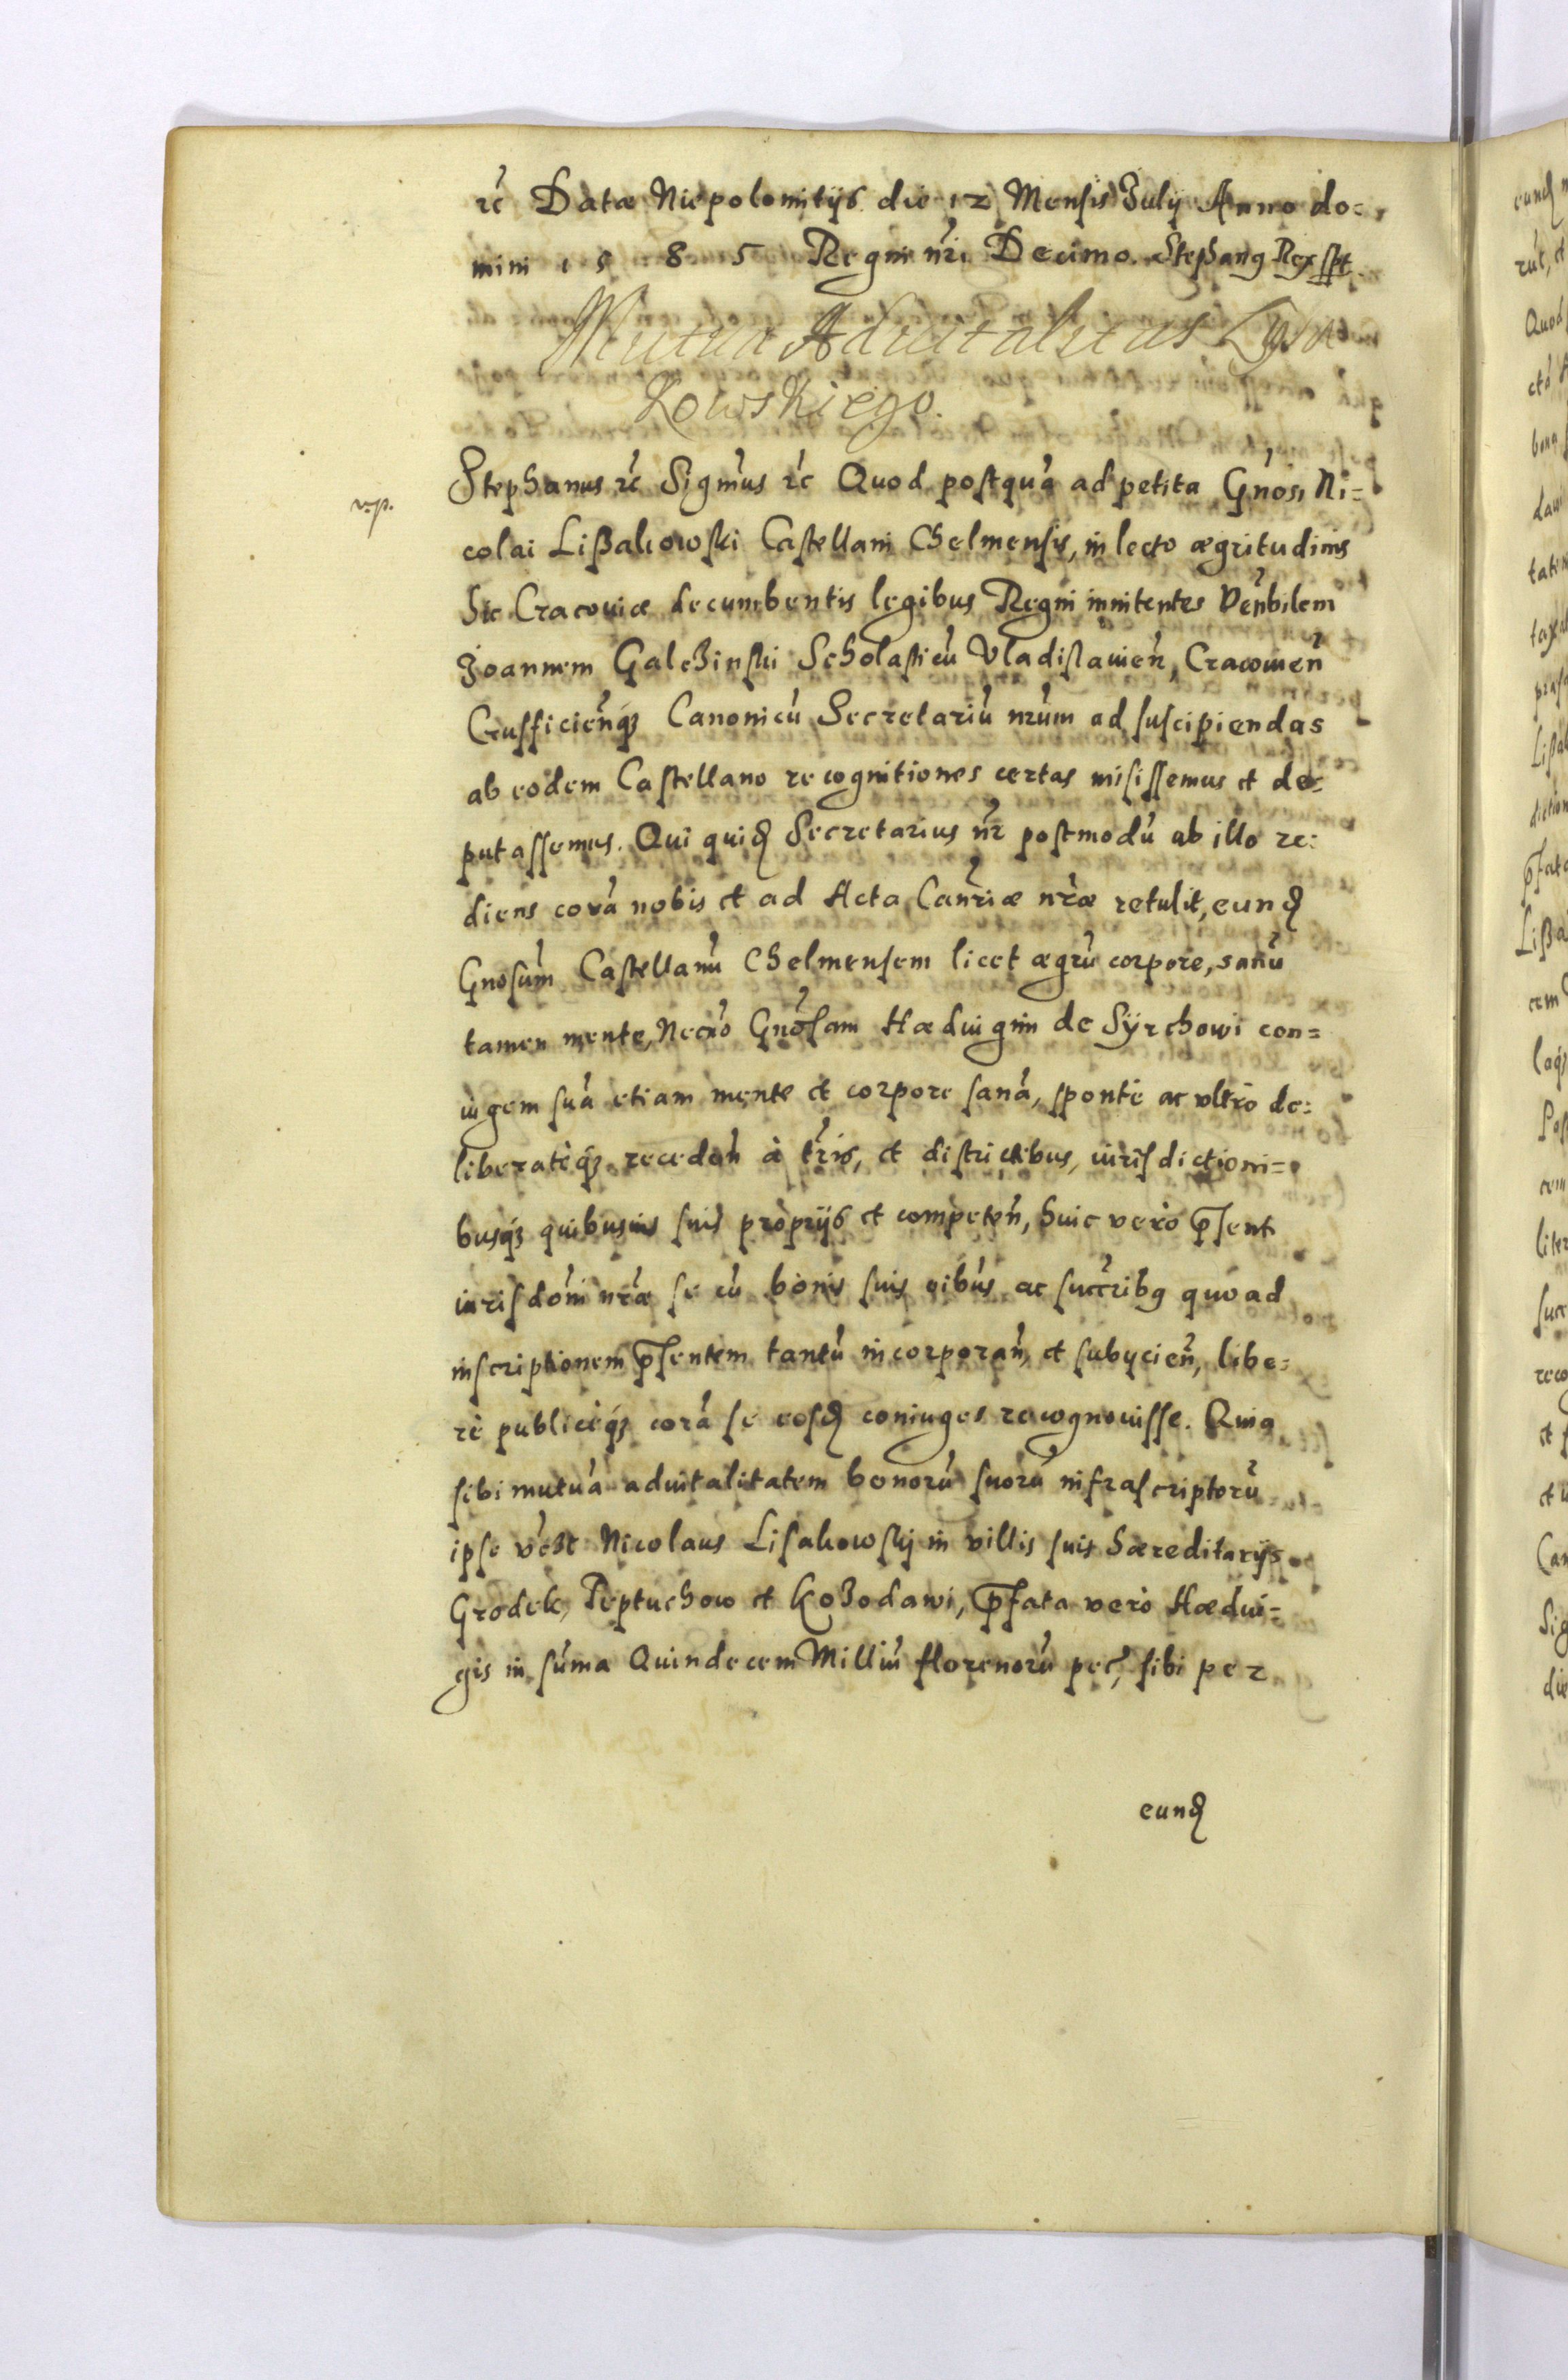 rc̃ Datæ Niepolomitijs die 12 Mensis Julij Anno do=
mini 1585 Regni nri Decimo. Stephanus Rex sspt
Mutua Advitalitas Lysa
kowskiego.
Stephanus rc̃ Sigm̃us rc̃ Quod postquã ad petita Gñosi Ni=
v.p.
colai Lißakowski Castellani Chelmensis, in lecto ægritudinis
hic Cracoviæ decumbentis legibus Regni innitentes Veñbilem
Joannem Galczinski Scholasticũ Vladislavieñ, Cracovieñ
Crusficieñqꝫ Canonicũ Secretariũ nrũm ad suscipiendas
ab eodem Castellano recognitiones certas misissemus et de=
putassemus. Qui quiđ Secretarius nr̃ postmodũ ab illo re=
diens corã nobis et ad Acta Canr̃iæ nr̃æ retulit, eunđ
Gnosum̃ Castellanũ Chelmensem licet ægrũ corpore, sanũ
tamen mente, Necnõ Gnõsam Hædvigim de Syrchowi con=
iugem suã etiam mente et corpore sanã, sponte ac vltrò de=
liberatéqꝫ recedeñ à tr̃is, et districtibus, iurisdictioni=
busqꝫ quibusvis suis proprijs et competeñ, huic verò p̃sent
iurisdom̃i nr̃æ se cũ bonis suis oĩbus ac succr̃ibꝯ quò ad
inscriptionem p̃sentem tantũ incorporañ, et subijcieñ, libe=
rè publicéqꝫ corã se eosđ coniuges recognovisse. Quia
sibi mutuã advitalitatem bonorũ suorũ infrascriptorũ
ipse vc̃zt Nicolaus Lisakowskj in villis suis hæreditarijs
Grodek, Peptuchow et Kozodawi, p̃fata verò Hædvi=
gis in sũma Quindecem Milliũ florenorũ pec̃, sibi per
eunđ